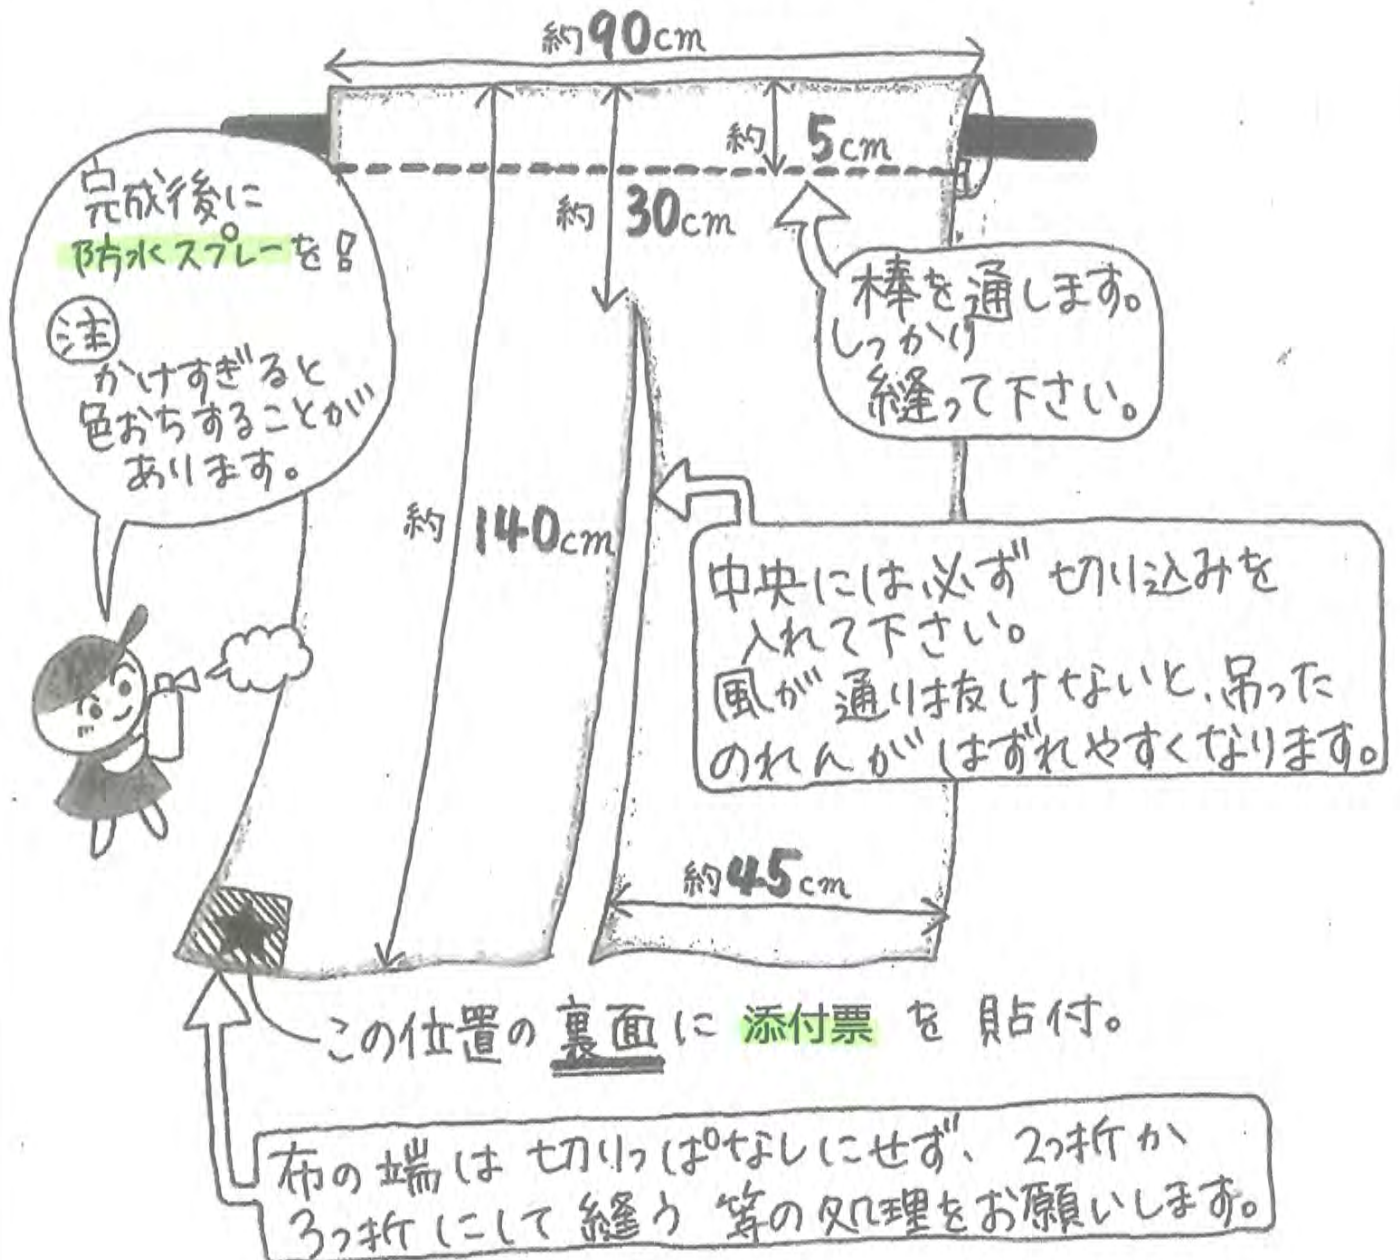 約90cm
約 5cm
約 30cm
完成後に
防水スプレーを!
注
かけすぎると
色おちすることが
あります。
棒を通します。
しっかり
縫って下さい。
約 140cm
中央には必ず切り込みを
入れて下さい。
風が通り抜けないと、吊った
のれんがはずれやすくなります。
約45cm
この位置の裏面に 添付票 を 貼付。
布の端は切りっぱなしにせず、2つ折か
3つ折にして縫う等の処理をお願いします。